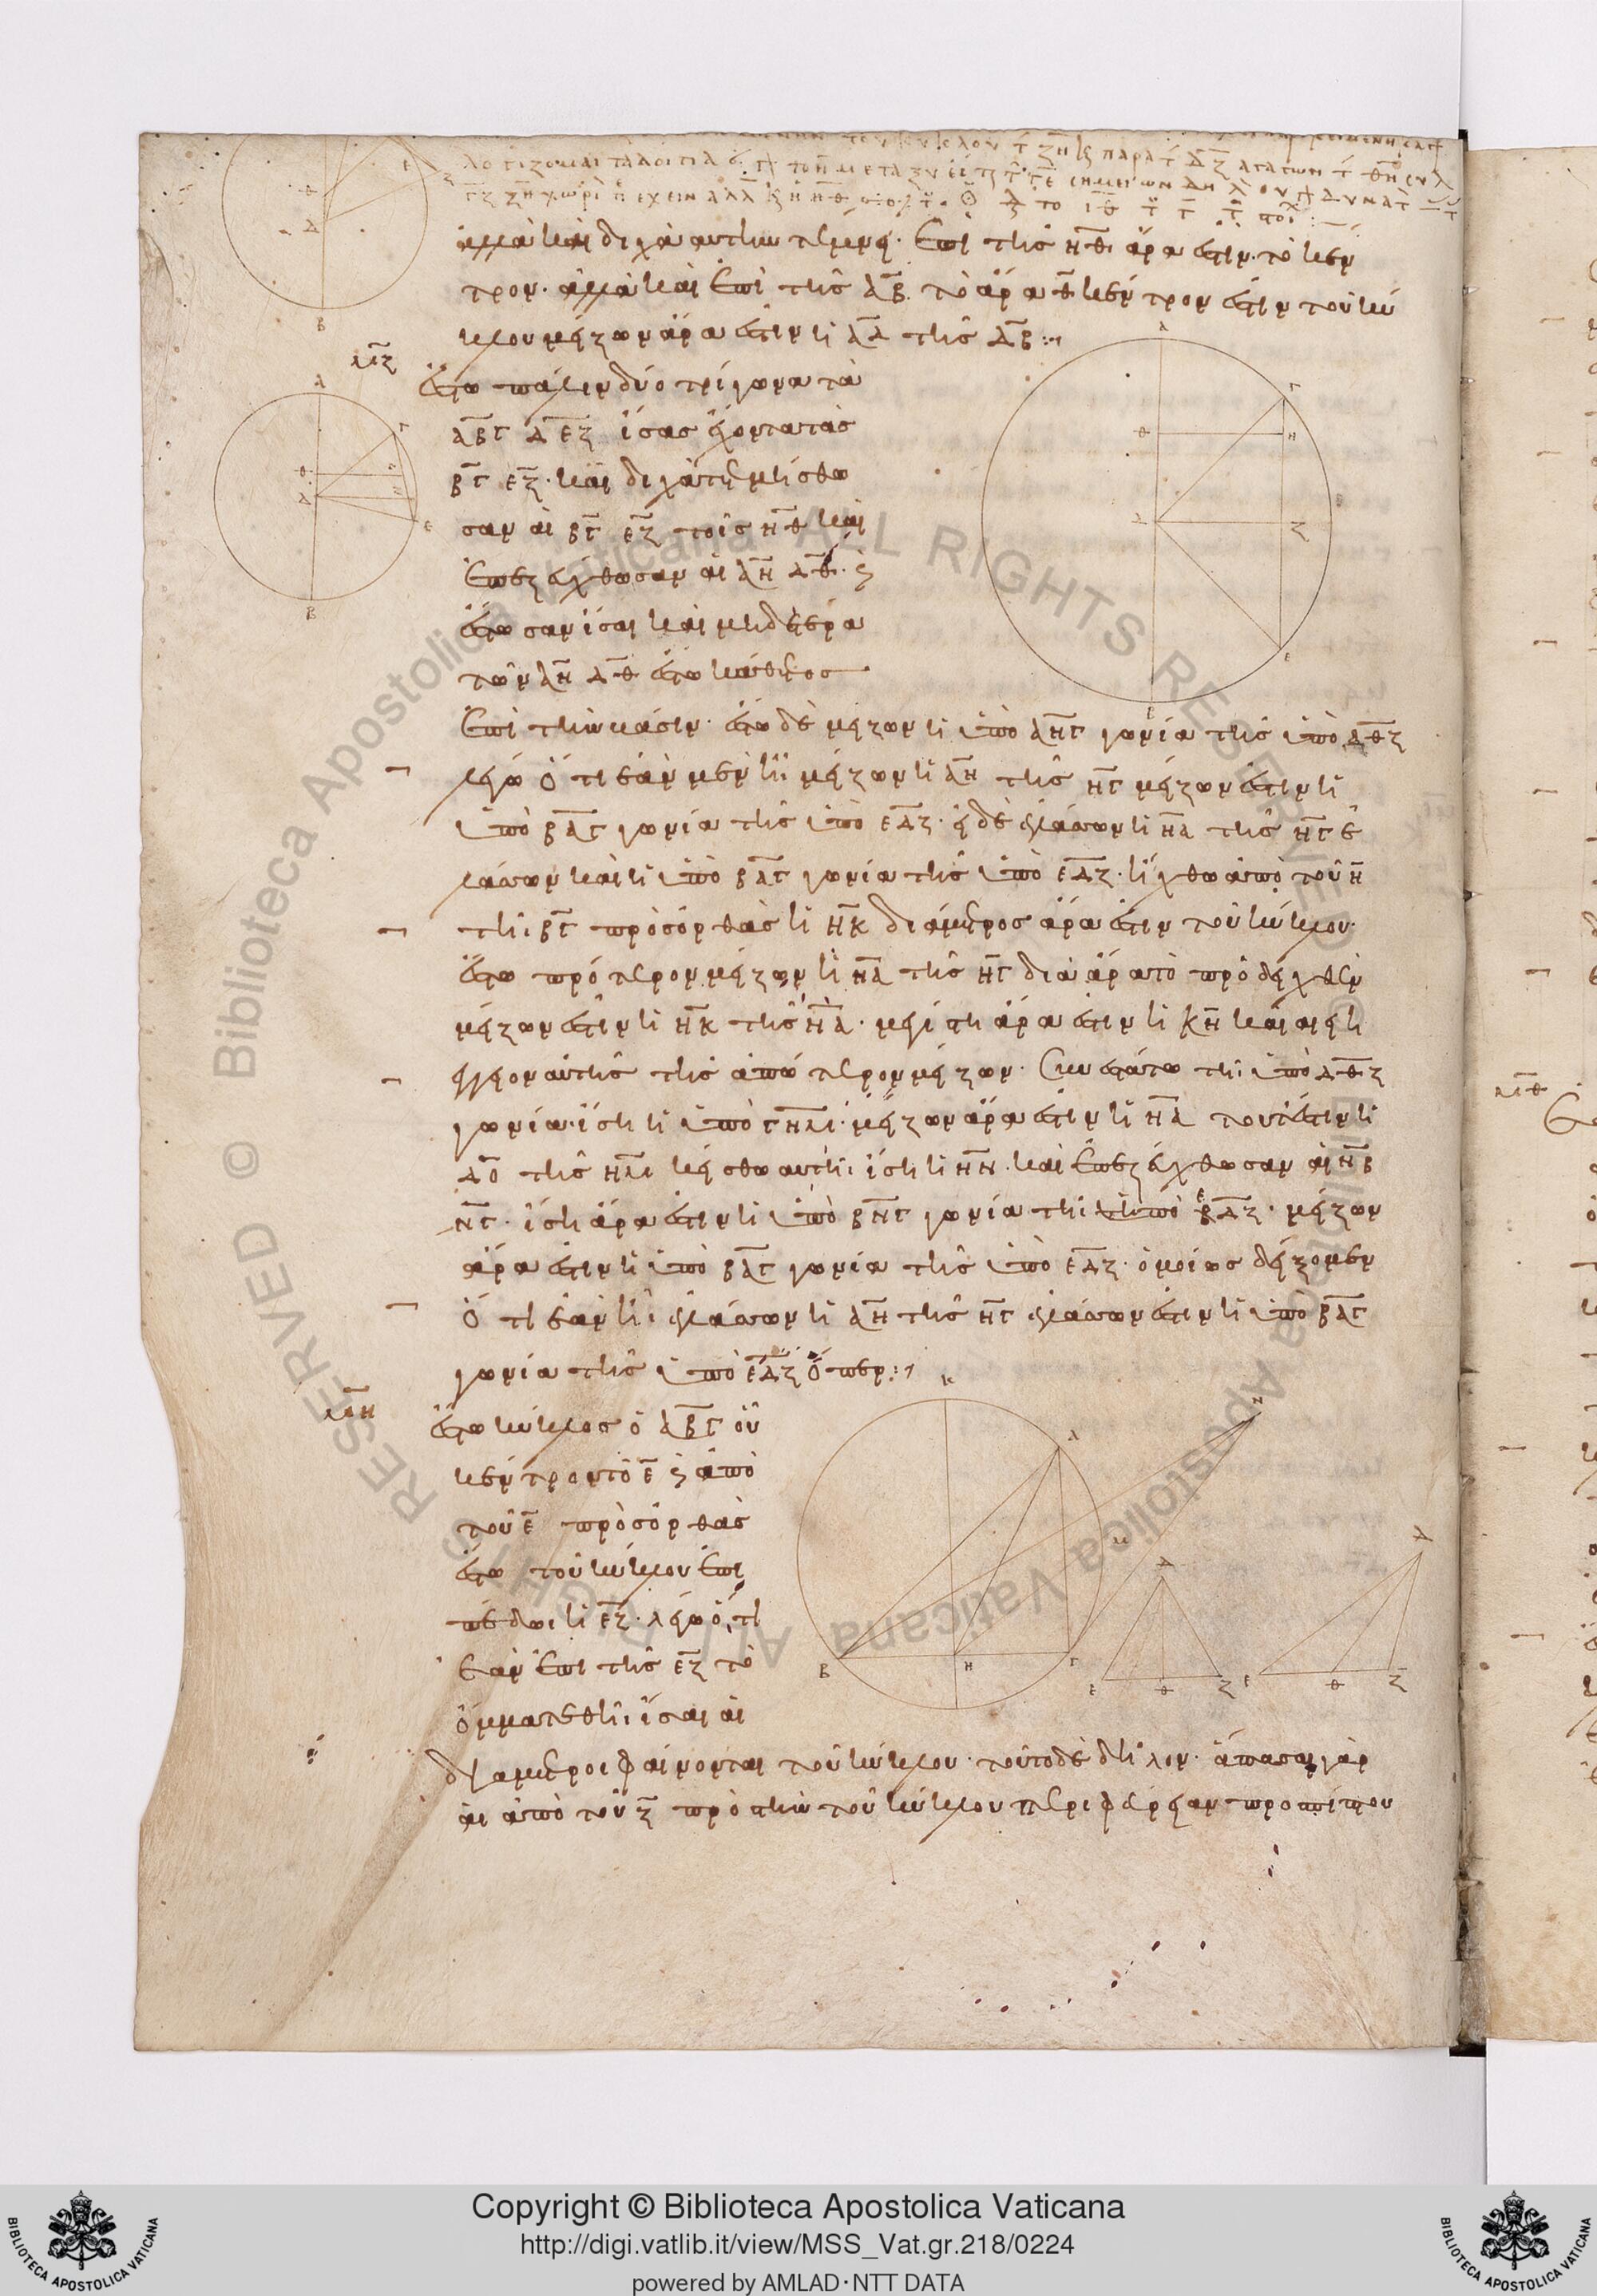 ἀλλὰ καὶ δίχα αὐτὴν τέμνει· ἐπὶ τῆς ΗΘ ἄρα ἐστὶν τὸ κέν
τρον· ἀλλὰ καὶ ἐπὶ τῆς ΑΒ· τὸ ἄρα Θ κέντρον ἐστὶν τοῦ κύ
κλου μείζων ἄρα ἐστὶν ἡ ΑΔ τῆς ΔΒ:
μζ
ἔστω πάλιν δύο τρίγωνα τὰ
ΑΒΓ ΔΕΖ ἴσας ἔχοντα τὰς
ΒΓ ΕΖ· καὶ δίχα τετμήσθω
σαν αἱ ΒΓ ΕΖ τοῖς ΗΘ καὶ
ἐπεζεύχθωσαν αἱ ΑΗ ΔΘ· καὶ
ἔστωσαν ἴσαι καὶ μηδετέρα
τῶν ΑΗ ΔΘ ἔστω κάθετος
ἐπὶ τὴν βάσιν· ἔστω δὲ μείζων ἡ ὑπὸ ΑΗΓ γωνία τῆς ὑπὸ ΔΘΖ
λέγω ὅτι ἐὰν μὲν ᾖ μείζων ἡ ΑΗ τῆς ΗΓ μείζων ἐστὶν ἡ
ὑπὸ ΒΑΓ γωνία τῆς ὑπὸ ΕΔΖ· εἰ δὲ ἐλάσσων ἡ ΗΑ τῆς ΗΓ ἐ
λάσσων καὶ ἡ ὑπὸ ΒΑΓ γωνία τῆς ὑπὸ ΕΔΖ· ἤχθω ἀπὸ τοῦ Η
τῆι ΒΓ πρὸς ὀρθὰς ἡ ΗΚ διάμετρος ἄρα ἐστὶν τοῦ κύκλου·
ἔστω πρότερον μείζων ἡ ΗΑ τῆς ΗΓ διὰ ἄρα τὸ προδειχθὲν
μείζων ἐστὶν ἡ ΗΚ τῆς ΗΑ· μεγίστη ἄρα ἐστὶν ἡ ΚΗ καὶ αἰεὶ ἡ
ἔγγειον αὐτῆς τῆς ἀπώτερον μείζων· συνεστάτω τῆι ὑπὸ ΔΘΖ
γωνίαι ἴση ἡ ὑπὸ ΓΗΜ· μείζων ἄρα ἐστὶν ἡ ΗΑ τουτέστιν ἡ
ΔΘ τῆς ΗΜ κείσθω αὐτῆι ἴση ἡ ΗΝ· καὶ ἐπεζεύχθωσαν αἱ ΝΒ
ΝΓ· ἴση ἄρα ἐστὶν ἡ ὑπὸ ΒΝΓ γωνία τῆι ὑπὸ ΕΔΖ· μείζων
ἄρα ἐστὶν ἡ ὑπὸ ΒΑΓ γωνία τῆς ὑπὸ ΕΔΖ· ὁμοίως δείξομεν
ὅτι ἐὰν ᾖ ἐλάσσων ἡ ΑΗ τῆς ΗΓ ἐλάσσων ἐστὶν ἡ ὑπὸ ΒΑΓ
γωνία τῆς ὑπὸ ΕΔΖ ὅπερ:
μη
ἔστω κύκλος ὁ ΑΒΓ οὗ
κέντρον τὸ Ε καὶ ἀπὸ
τοῦ Ε πρὸς ὀρθὰς
ἔστω τοῦ κύκλου ἐπι
πέδωι ἡ ΕΖ· λέγω ὅτι
ἐὰν ἐπὶ τῆς ΕΖ τὸ
ὄμμα τεθῆι ἴσαι αἱ
διάμετροι φαίνονται τοῦ κύκλου· τοῦτο δὲ δῆλον· ἅπασαι γὰρ
αἱ ἀπὸ τοῦ Ζ πρὸ τὴν τοῦ κύκλου περιφέρειαν προσπίπτου
Copyright © Biblioteca Apostolica Vaticana
http://digi.vatlib.it/view/MSS_Vat.gr.218/0224
powered by AMLAD·NTT DATA